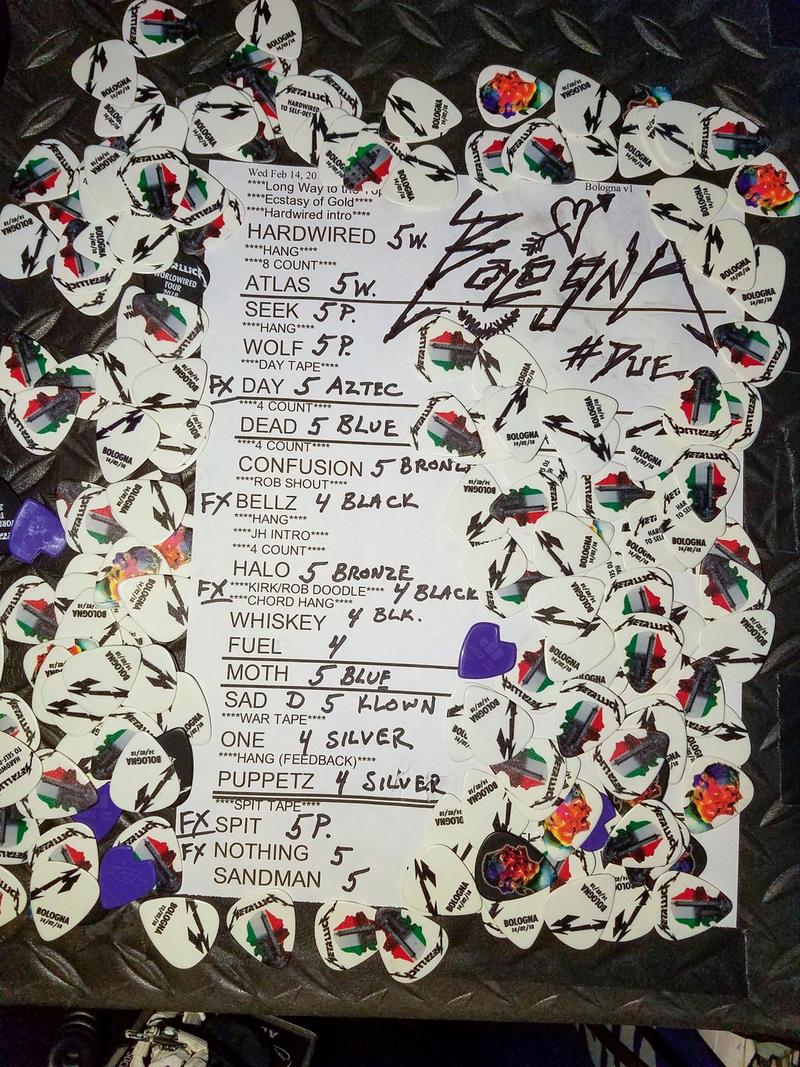 Wed Feb 14, 20
Bologna v1
****Long Way to the
****Ecstasy of Gold****
****Hardwired intro****
HARDWIRED 5W.
****HANG****
****8 COUNT****
ATLAS 5W.
BOLOGNA
#DUE
SEEK 5P.
****HANG****
WOLF 5P.
****DAY TAPE****
FX DAY 5 AZTEC
****4 COUNT****
DEAD 5 BLUE
****4 COUNT****
CONFUSION 5 BRONZE
****ROB SHOUT****
FX BELLZ 4 BLACK
****HANG****
****JH INTRO****
****4 COUNT****
HALO 5 BRONZE
FX ****KIRK/ROB DOODLE**** 4 BLACK
****CHORD HANG****
WHISKEY 4 BLK.
FUEL 4
MOTH 5 BLUE
SAD D 5 KLOWN
****WAR TAPE****
ONE 4 SILVER
****HANG (FEEDBACK)****
PUPPETZ 4 SILVER
****SPIT TAPE****
FX SPIT 5P.
FX NOTHING 5
SANDMAN 5
METALLICA
BOLOGNA
14/02/18
HARDWIRED
TO SELF-DES
WORLDWIRED
TOUR
2018